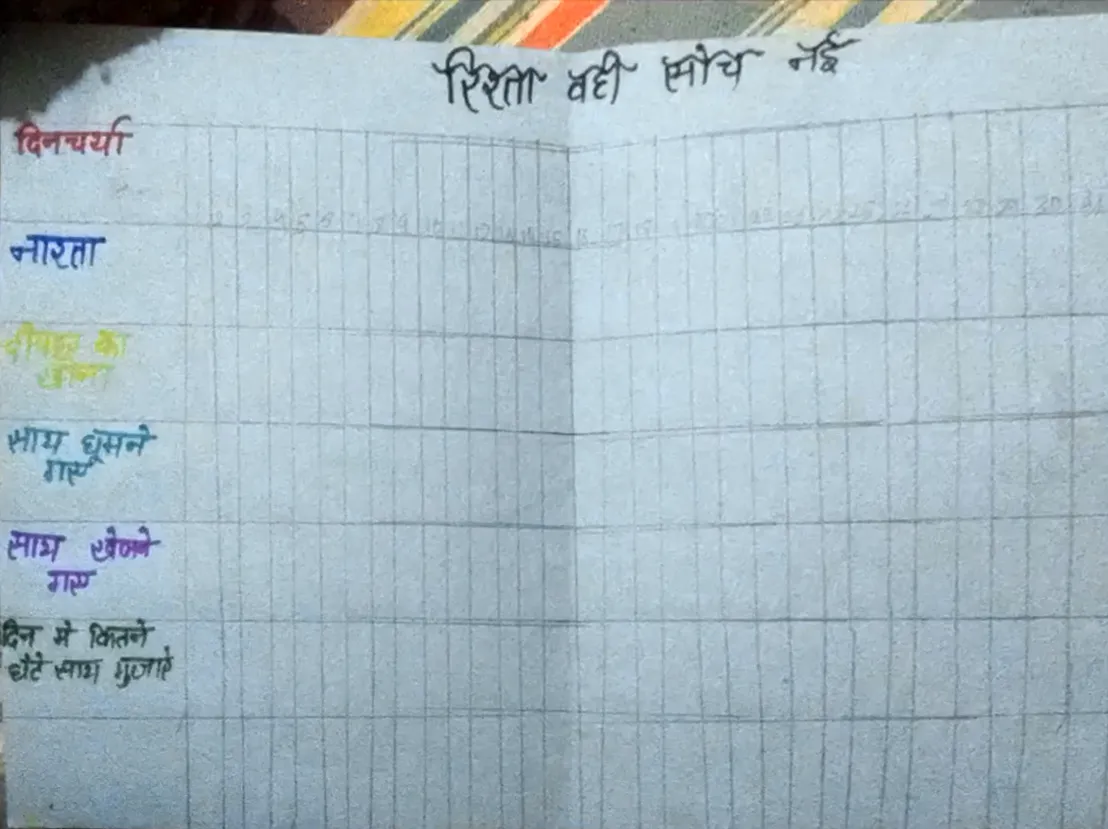 रिश्ता वही सोच नई
दिनचर्या
2 3 4 5 6 7 8 9 10 11 12 13 14 15 16 17 18
नाश्ता
दोपहर का
खाना
साथ घूमने
गए
साथ खेलने
गए
दिन मे कितने
घंटे साथ गुजारे